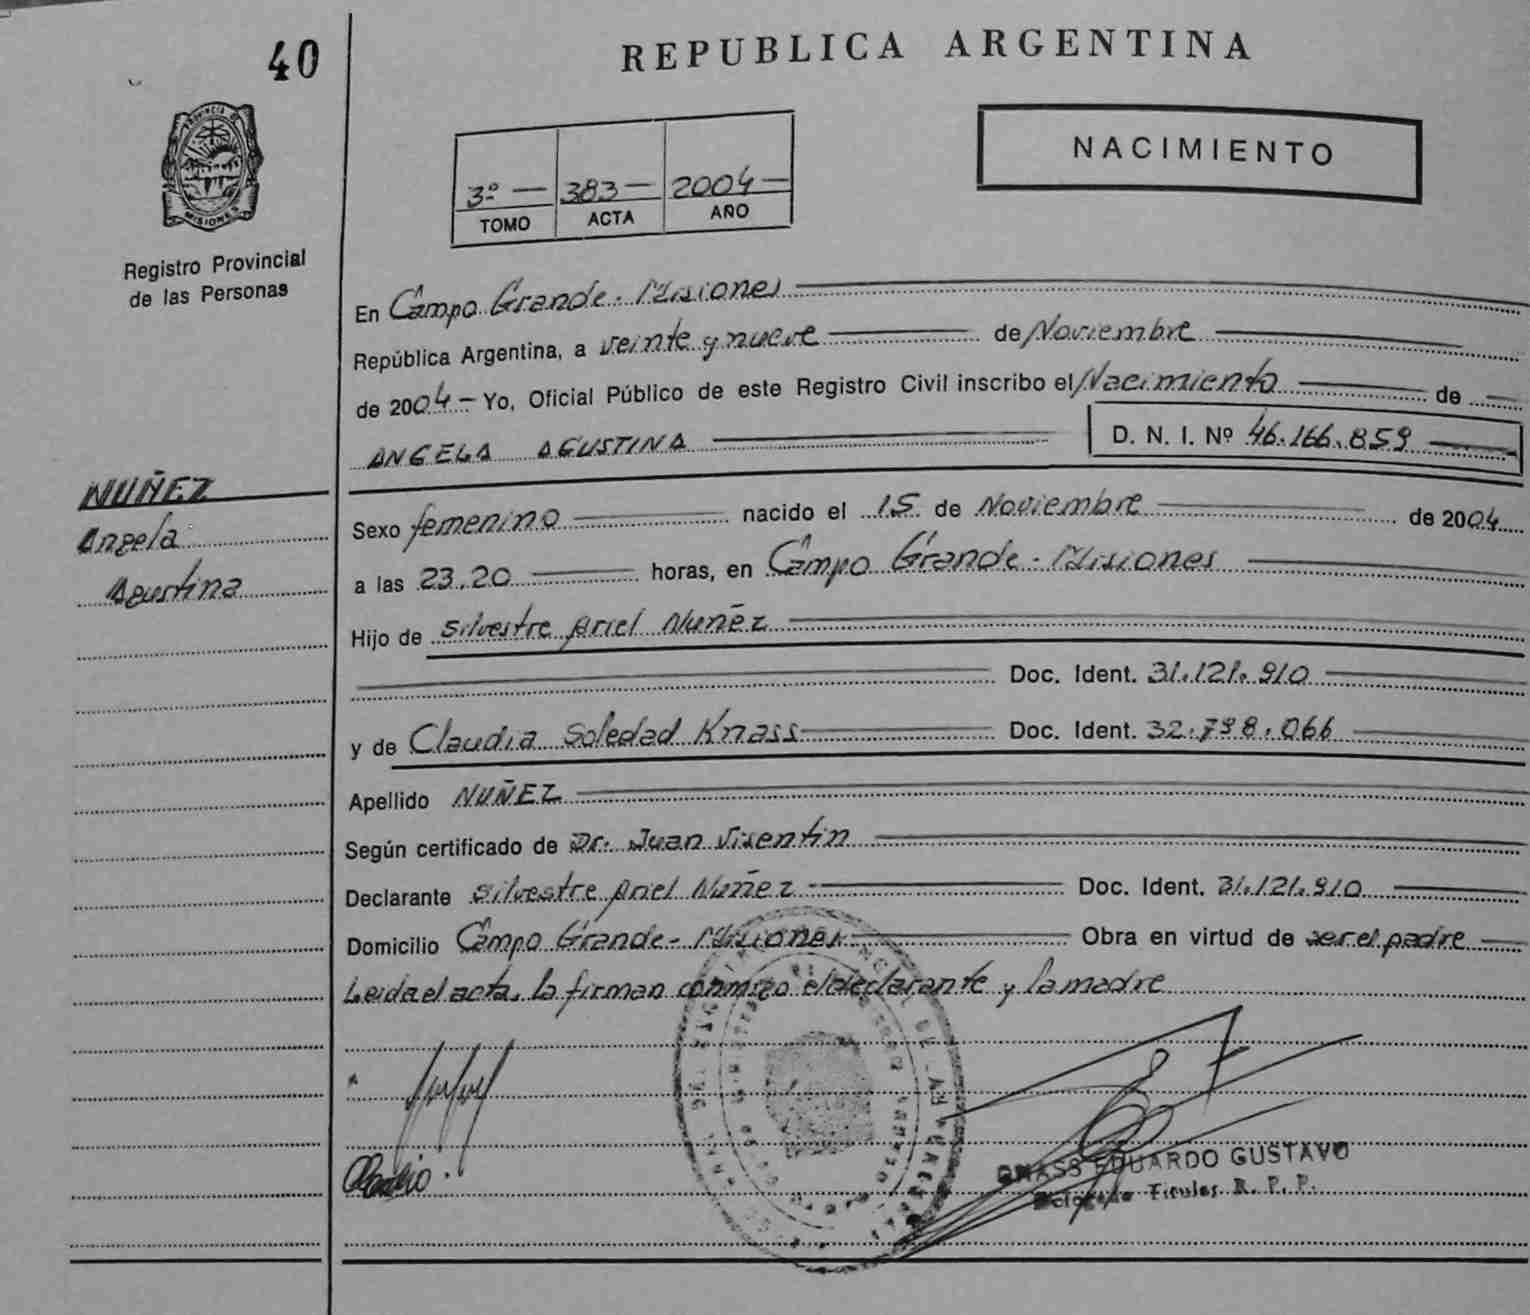 40
REPUBLICA ARGENTINA
PROVINCIA DE
MISIONES
Registro Provincial
de las Personas
NACIMIENTO
3º — 383 — 2004 —
TOMO ACTA AÑO
En Campo Grande - Misiones
República Argentina, a veinte y nueve de Noviembre
de 2004 - Yo, Oficial Público de este Registro Civil inscribo el Nacimiento de
ANGELA AGUSTINA D. N. I. Nº 46.166.859
NUÑEZ
Angela
Agustina
Sexo femenino nacido el 15 de Noviembre de 2004
a las 23.20 horas, en Campo Grande - Misiones
Hijo de Silvestre Ariel Nuñez
Doc. Ident. 31.121.910
y de Claudia Soledad Knass Doc. Ident. 32.798.066
Apellido NUÑEZ
Según certificado de Dr. Juan Visentin
Declarante Silvestre Ariel Nuñez Doc. Ident. 31.121.910
Domicilio Campo Grande - Misiones Obra en virtud de ser el padre
Leida el acta, la firman conmigo el declarante y la madre
EDUARDO GUSTAVO
Titular R. P. P.